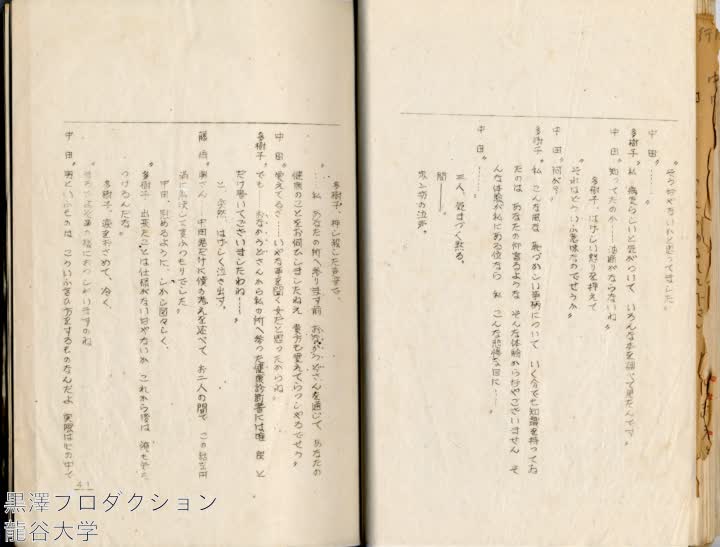 〝そうぢやないかと思つてました〟
中田〝………〟
多樹子〝私 病気らしいと気がついて いろんな本を調べて見たんです〟
中田〝知つてたのか……油断がならないね〟
多樹子、はげしい怒りを押えて
〝それはどういふ意味なのでせうか〟
中田〝何が？〟
多樹子〝私 こんな風な 気づかしい事柄について いく分でも知識を持つてゐ
たのは あなたの仰言るような そんな体験からぢやございません そ
んな体験が私にある位なら 私 こんな悲惨な目に……〟
中田〝………〟
三人、気まづく黙る。
間――
多樹子の泣声。
多樹子、押し殺した声で、
〝……私 あなたの所へ参ります前 おなかうどさんを通じて あなたの
健康のことをお伺ひしましたわね 貴方も覚えてらつしやるでせう〟
中田〝覚えてるさ……いやな事を聞く女だと思つたからね〟
多樹子〝でも……おなかうどさんから私の所へ参つた健康診断書には唯 良 と
だけ書いてございましたわね……〟
と、突然、はげしく泣き出す。
藤崎〝奥さん 中田君だけに僕の考えを述べて お二人の間で この話を円
満に解決して貰ふつもりでした〟
中田、慰めるように、しかし図々しく、
〝多樹子 出来たことは仕様がないぢやないか これから後は 俺も気を
つけるんだな〟
多樹子、涙をおさめて、冷く、
中田〝男といふものは こういふ言ひ方をするものなんだよ 実際は心の中で
41
黒澤プロダクション
龍谷大学